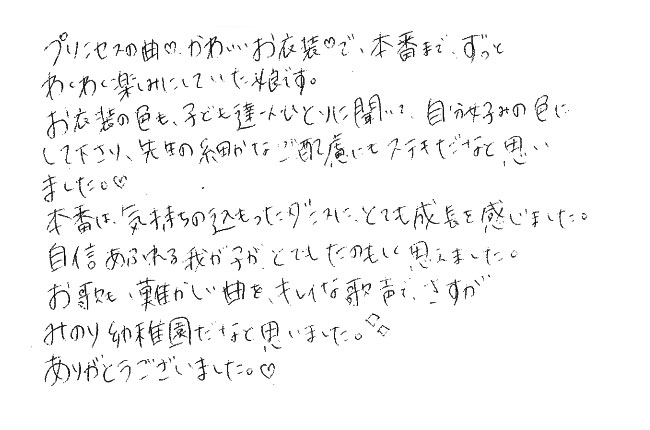 プリンセスの曲♡かわいいお衣装♡で、本番まで、ずっと
わくわく楽しみにしていた娘です。
お衣装の色も、子ども達一人ひとりに聞いて、自分好みの色に
して下さり、先生の細かなご配慮にもステキだなと思い
ました。♡
本番は、気持ちの込もったダンスに、とても成長を感じました。
自信あふれる我が子が、とてもたのもしく思えました。
お歌も、難かしい曲を、キレイな歌声で、さすが
みのり幼稚園だなと思いました。
ありがとうございました。♡